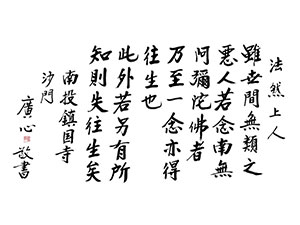 法然上人
雖世間無類之
惡人若念南無
阿彌陀佛者
乃至一念亦得
往生也
此外若另有所
知則失往生矣
南投鎮国寺
沙門
廣心
敬書